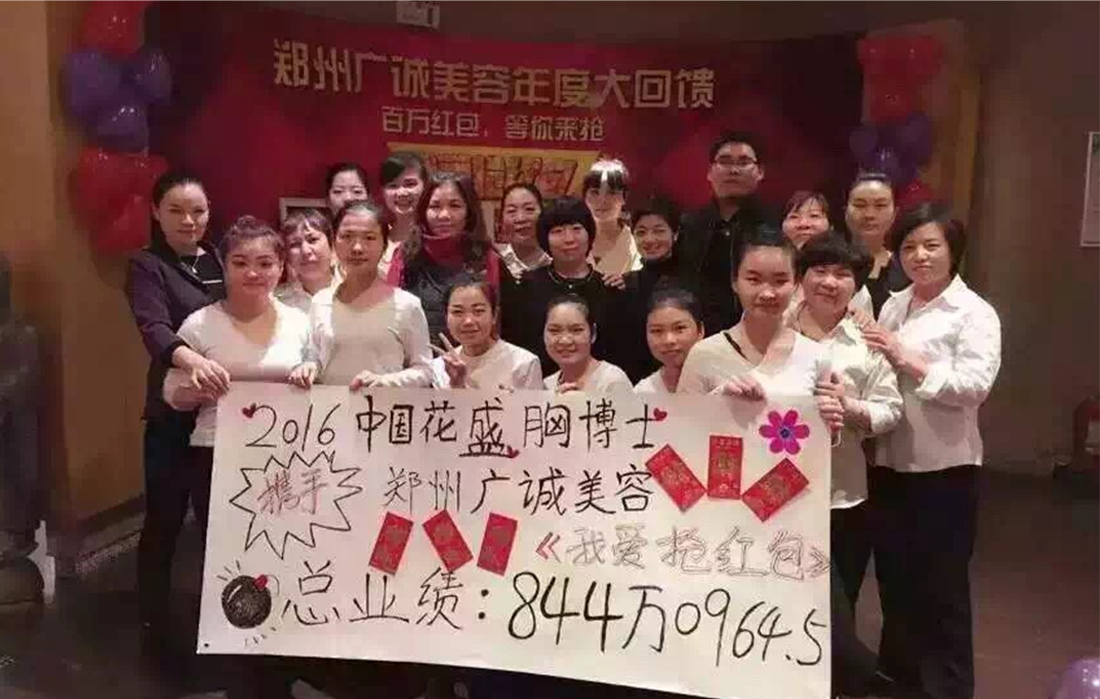 郑州广诚美容年度大回馈
百万红包，等你来抢
2016 中国花盛胸博士
携手 郑州广诚美容
《我爱抢红包》
总业绩：844万0964.5